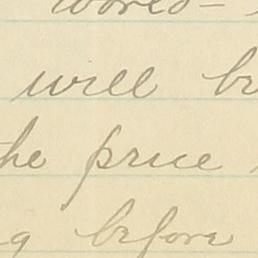 world -
will be
the price
g before